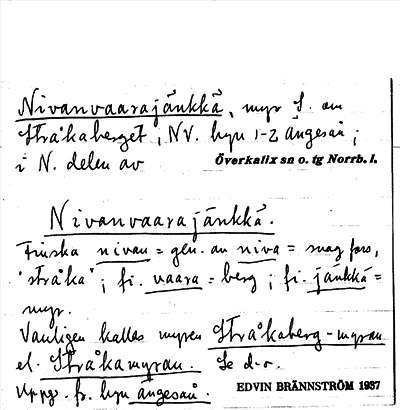 Nivanvaarajänkkä, myr S. om
Stråkaberget i NV. hyn 1-2 Ängesån;
i N. delen av Överkalix sn o. tg Norrb. l.
Nivanvaarajänkkä.
Finska nivan = gen. av niva = svag fors,
"stråka"; fi. vaara = berg; fi. jänkkä =
myr.
Vanligen kallas myren Stråkaberg-myran
el. Stråkamyran. Se d.o.
Uppg. fr. byn Ängeså.
EDVIN BRÄNNSTRÖM 1937